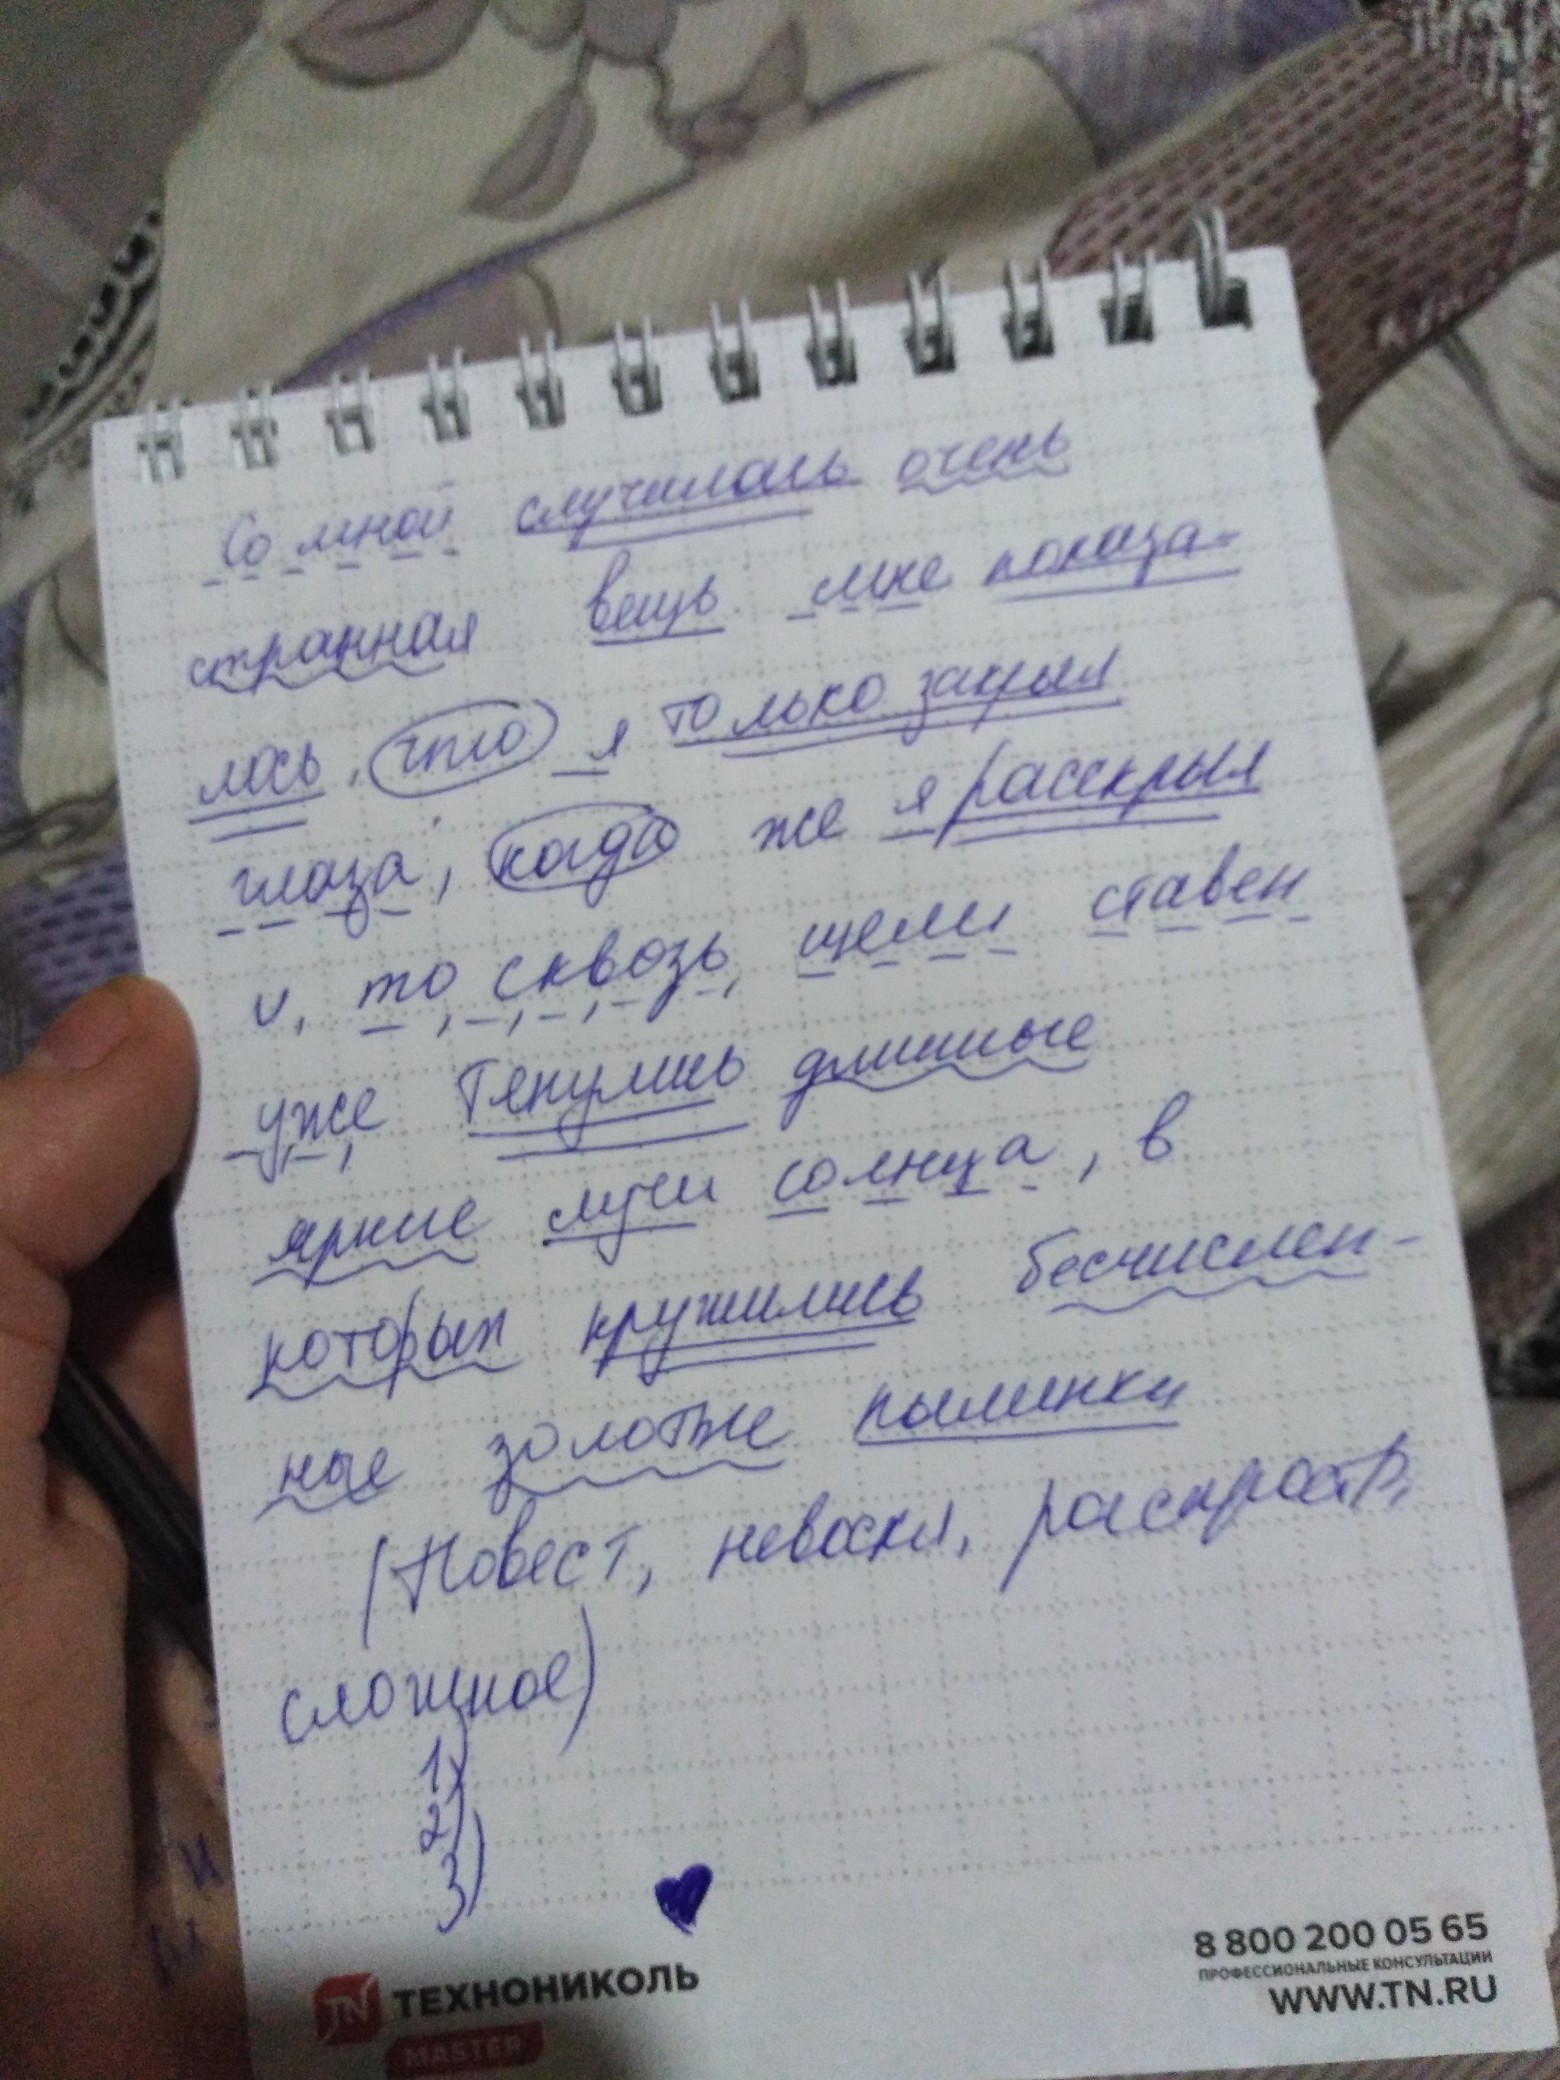 Со мной случилась очень
странная вещь мне показа-
лось, что я только закрыл
глаза, когда же я расскрыл
и, то сквозь щели ставен
уже тянулись длинные
яркие лучи солнца, в
которых кружились бесчислен-
ные золотые пылинки
(Повест, невоскл, распростр,
сложное)
1)
2)
3)
ТЕХНОНИКОЛЬ
MASTER
8 800 200 05 65
ПРОФЕССИОНАЛЬНЫЕ КОНСУЛЬТАЦИИ
WWW.TN.RU